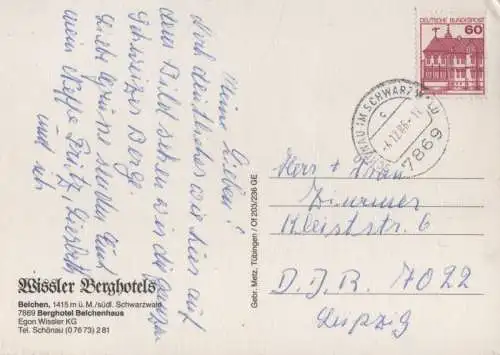 Meine Lieben!
Noch deutlicher wie hier auf
dem Bild sehen wir die ganzen
Schweizer Berge.
Liebe Grüsse senden Euch
mein Neffe Fritz, Liesbeth
und ich
Wissler Berghotels
Belchen, 1415 m ü. M./südl. Schwarzwald
7869 Berghotel Belchenhaus
Egon Wissler KG
Tel. Schönau (0 76 73) 2 81
Gebr. Metz, Tübingen / Of 203/236 GE
DEUTSCHE BUNDESPOST
60
SCHÖNAU IM SCHWARZWALD
c
7869
Herr + Frau
Kleiststr. 6
D.D.R. 7022
Leipzig